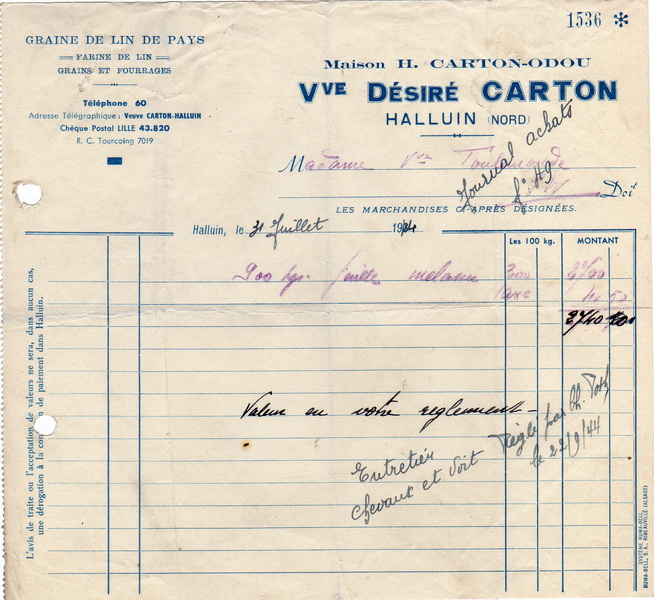 1536 *
GRAINE DE LIN DE PAYS
FARINE DE LIN
GRAINS ET FOURRAGES
Téléphone 60
Adresse Télégraphique : Veuve CARTON-HALLUIN
Chèque Postal LILLE 43.820
R. C. Tourcoing 7019
Maison H. CARTON-ODOU
VVE DÉSIRÉ CARTON
HALLUIN (NORD)
Madame Vve
Journal achats
f° 49
Doit
LES MARCHANDISES CI-APRÈS DÉSIGNÉES.
Halluin, le 31 Juillet 1944
Les 100 kg. MONTANT
900 kgs. mélasse 300 2700
taxe 40 50
2740 50
Valeur en votre règlement
Réglé par Ch.
le 22/9/44
Entretien
chevaux et
L'avis de traite ou l'acceptation de valeurs ne sera, dans aucun cas,
une dérogation à la de paiement dans Halluin.
SYSTÈME RUWA-BELL
RUWA-BELL, S. A., RIBEAUVILLÉ (ALSACE)